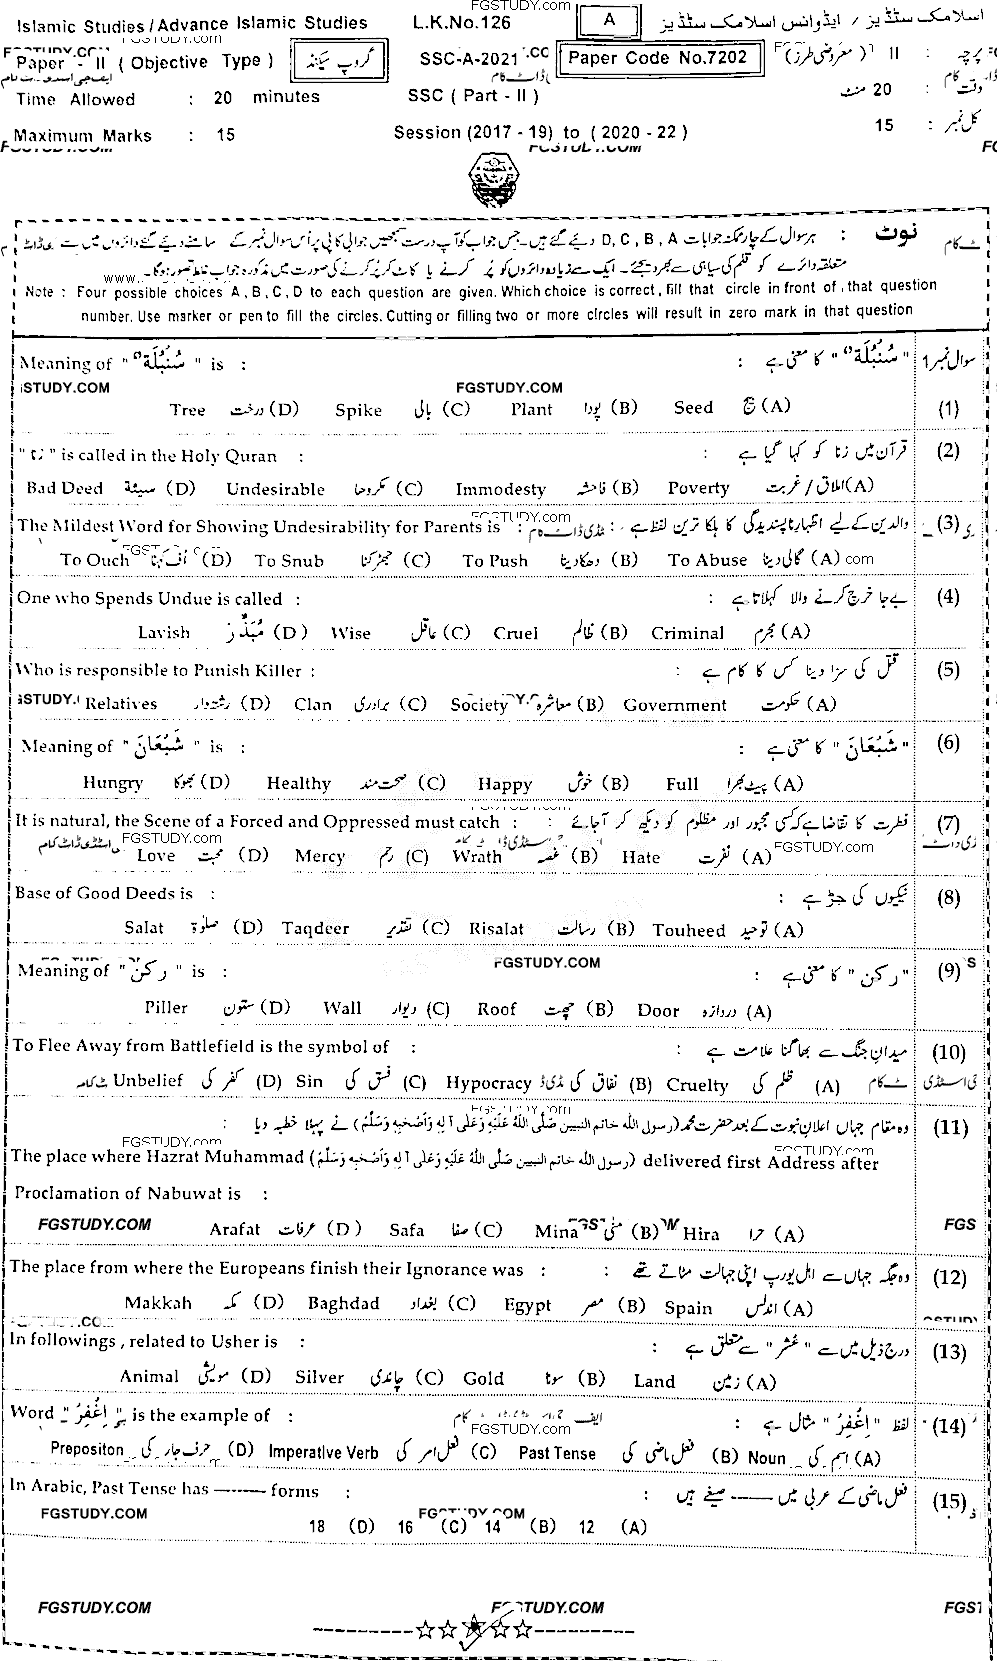 FGSTUDY.com
Islamic Studies/Advance Islamic Studies L.K.No.126 A اسلامک سٹڈیز / ایڈوانس اسلامک سٹڈیز
Paper - II ( Objective Type ) گروپ سیکنڈ SSC-A-2021 Paper Code No.7202 پرچہ : II (معروضی طرز)
Time Allowed : 20 minutes SSC ( Part - II ) وقت : 20 منٹ
Maximum Marks : 15 Session (2017 - 19) to ( 2020 - 22 ) کل نمبر : 15
نوٹ : ہر سوال کے چار ممکنہ جوابات D, C, B, A دیئے گئے ہیں۔ جس جواب کو آپ درست سمجھیں جوابی کاپی پر اُس سوال نمبر کے سامنے دیئے گئے دائروں میں سے
متعلقہ دائرے کو قلم کی سیاہی سے بھر دیجئے۔ ایک سے زیادہ دائروں کو پُر کرنے یا کاٹ کر پُر کرنے کی صورت میں مذکورہ جواب غلط تصور ہو گا۔ www
Note : Four possible choices A , B , C , D to each question are given. Which choice is correct, fill that circle in front of that question
number. Use marker or pen to fill the circles. Cutting or filling two or more circles will result in zero mark in that question
Meaning of " سُنْبُلَة " is : " سُنْبُلَة " کا معنی ہے : سوال نمبر 1
FGSTUDY.COM
Tree درخت (D) Spike بالی (C) Plant پودا (B) Seed بیج (A) (1)
" زنا " is called in the Holy Quran : قرآن میں زنا کو کہا گیا ہے : (2)
Bad Deed سیئة (D) Undesirable مکروھا (C) Immodesty فاحشہ (B) Poverty املاق / غربت (A)
The Mildest Word for Showing Undesirability for Parents is : والدین کے لیے اظہارِ ناپسندیدگی کا ہلکا ترین لفظ ہے : (3)
To Ouch اُف کہنا (D) To Snub جھڑکنا (C) To Push دھکا دینا (B) To Abuse گالی دینا (A) com
One who Spends Undue is called : بے جا خرچ کرنے والا کہلاتا ہے : (4)
Lavish مُبَذِّر (D) Wise عاقل (C) Cruel ظالم (B) Criminal مجرم (A)
Who is responsible to Punish Killer : قتل کی سزا دینا کس کا کام ہے : (5)
Relatives رشتہ دار (D) Clan برادری (C) Society معاشرہ (B) Government حکومت (A)
Meaning of " شَبْعَانَ " is : " شَبْعَانَ " کا معنی ہے : (6)
Hungry بھوکا (D) Healthy صحت مند (C) Happy خوش (B) Full پیٹ بھرا (A)
It is natural, the Scene of a Forced and Oppressed must catch : فطرت کا تقاضا ہے کہ کسی مجبور اور مظلوم کو دیکھ کر آ جائے : (7)
FGSTUDY.com FGSTUDY.com
Love محبت (D) Mercy رحم (C) Wrath غصہ (B) Hate نفرت (A)
Base of Good Deeds is : نیکیوں کی جڑ ہے : (8)
Salat صلوٰة (D) Taqdeer تقدیر (C) Risalat رسالت (B) Touheed توحید (A)
FGSTUDY.COM
Meaning of " رکن " is : " رکن " کا معنی ہے : (9)
Piller ستون (D) Wall دیوار (C) Roof چھت (B) Door دروازہ (A)
To Flee Away from Battlefield is the symbol of : میدانِ جنگ سے بھاگنا علامت ہے : (10)
Unbelief کفر کی (D) Sin فسق کی (C) Hypocracy نفاق کی (B) Cruelty ظلم کی (A)
وہ مقام جہاں اعلانِ نبوت کے بعد حضرت محمد (رسول اللہ خاتم النبیین صَلَّی اللہُ عَلَیْہِ وَعَلٰی آلِہٖ وَاَصْحٰبِہٖ وَسَلَّمَ) نے پہلا خطبہ دیا : (11)
FGSTUDY.com FGSTUDY.com
The place where Hazrat Muhammad (رسول اللہ خاتم النبیین صَلَّی اللہُ عَلَیْہِ وَعَلٰی آلِہٖ وَاَصْحٰبِہٖ وَسَلَّمَ) delivered first Address after
Proclamation of Nabuwat is :
FGSTUDY.COM Arafat عرفات (D) Safa صفا (C) Mina منٰی (B) Hira حرا (A) FGS
The place from where the Europeans finish their Ignorance was : وہ جگہ جہاں سے اہل یورپ اپنی جہالت مٹاتے تھے : (12)
Makkah مکہ (D) Baghdad بغداد (C) Egypt مصر (B) Spain اندلس (A)
In followings , related to Usher is : درج ذیل میں سے " عُشر " سے متعلق ہے : (13)
Animal مویشی (D) Silver چاندی (C) Gold سونا (B) Land زمین (A)
Word " اِغْفِرْ " is the example of : لفظ " اِغْفِرْ " مثال ہے : (14)
FGSTUDY.com
Prepositon حرف جار کی (D) Imperative Verb فعل امر کی (C) Past Tense فعل ماضی کی (B) Noun اسم کی (A)
In Arabic, Past Tense has ------- forms : فعل ماضی کے عربی میں ------- صیغے ہیں : (15)
FGSTUDY.COM FGSTUDY.COM
18 (D) 16 (C) 14 (B) 12 (A)
FGSTUDY.COM FGSTUDY.COM FGST